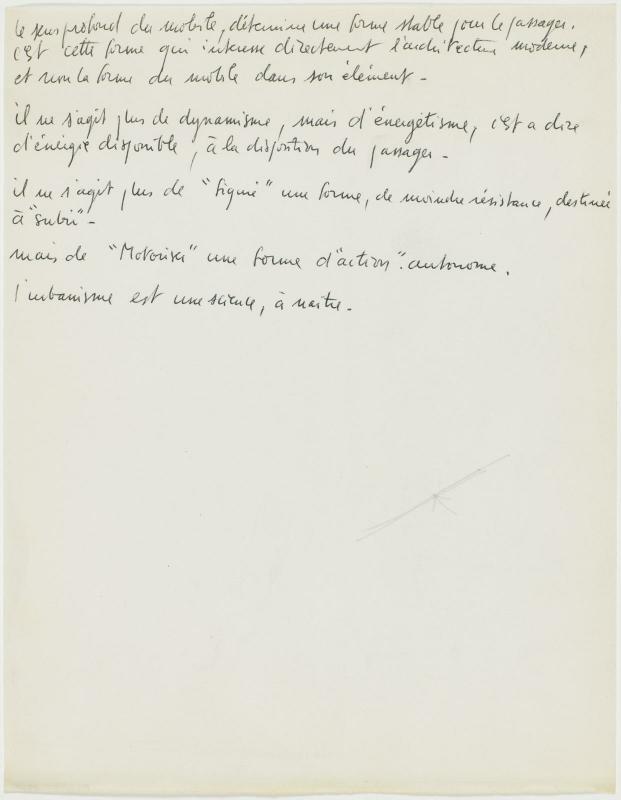 le sens profond du mobile, détermine une forme stable pour le passager.
c'est cette forme qui interesse directement l'architecture moderne,
et non la forme du mobile dans son élément -
il ne s'agit plus de dynamisme, mais d'énergétisme, c'est a dire
d'énergie disponible, à la disposition du passager -
il ne s'agit plus de "figurer" une forme, de moindre résistance, destinée
à "subir" -
mais de "Motoriser" une forme d'"action". autonome.
l'urbanisme est une science, à naitre.